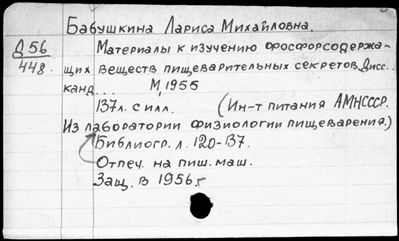 Бабушкина Лариса Михайловна.
Д 56
448.
Материалы к изучению фосфорсодержа-
щих веществ пищеварительных секретов. Дисс.
канд... М, 1955
137л. с илл. (Ин-т питания АМНСССР.
Из лаборатории физиологии пищеварения.)
Библиогр. л. 120-137.
Отпеч. на пиш. маш.
Защ. в 1956 г